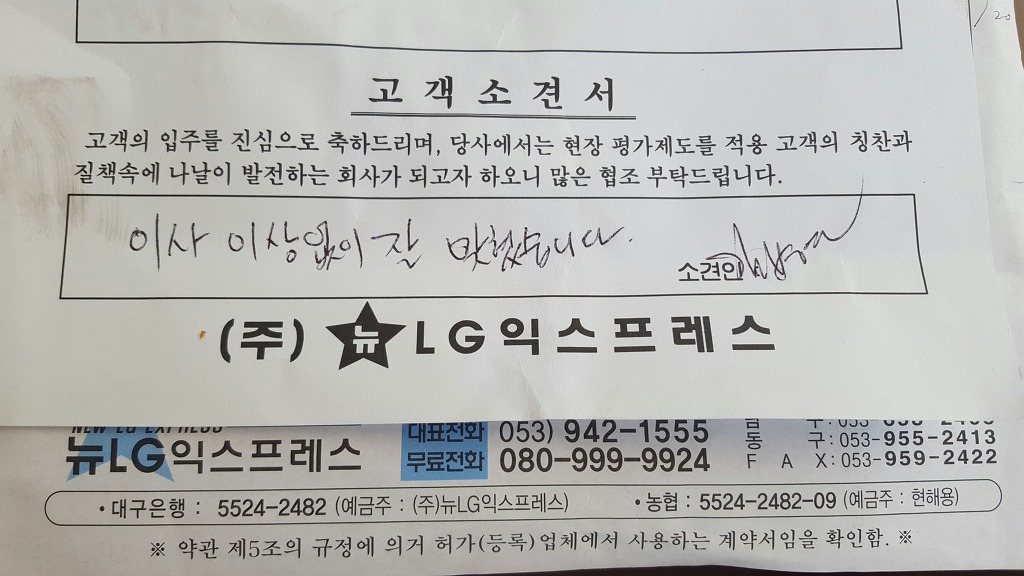 20
고객소견서
고객의 입주를 진심으로 축하드리며, 당사에서는 현장 평가제도를 적용 고객의 칭찬과
질책속에 나날이 발전하는 회사가 되고자 하오니 많은 협조 부탁드립니다.
이사 이상없이 잘 맞쳤습니다.
소견인
(주) 뉴 LG익스프레스
NEW LG EXPRESS
뉴LG익스프레스
대표전화 053) 942-1555
무료전화 080-999-9924
구:053
동 구:053-955-2413
F A X:053-959-2422
•대구은행 : 5524-2482 (예금주 : (주)뉴LG익스프레스) •농협 : 5524-2482-09 (예금주 : 현해용)
※ 약관 제5조의 규정에 의거 허가(등록)업체에서 사용하는 계약서임을 확인함. ※